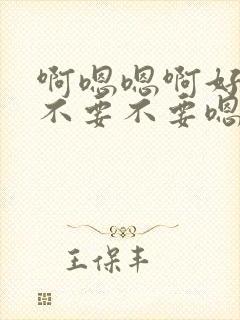 啊嗯嗯啊好
不要不要嗯
王保丰